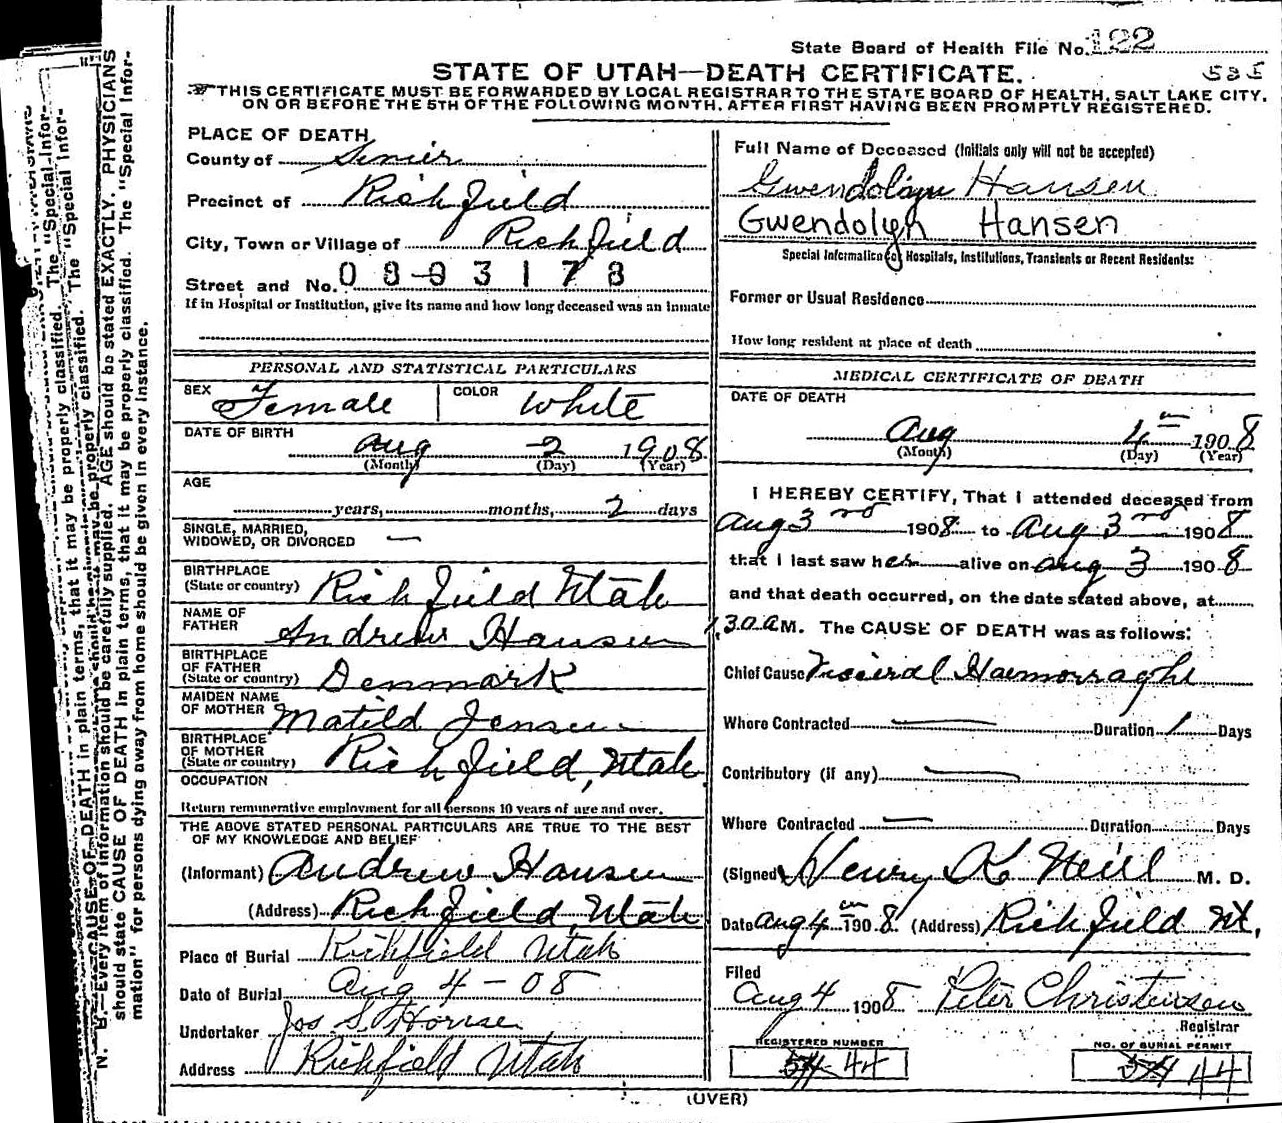 State Board of Health File No. 122
STATE OF UTAH—DEATH CERTIFICATE. 535
THIS CERTIFICATE MUST BE FORWARDED BY LOCAL REGISTRAR TO THE STATE BOARD OF HEALTH, SALT LAKE CITY,
ON OR BEFORE THE 5TH OF THE FOLLOWING MONTH, AFTER FIRST HAVING BEEN PROMPTLY REGISTERED.
PLACE OF DEATH,
County of Sevier
Precinct of Richfield
City, Town or Village of Richfield
Street and No. 0803178
If in Hospital or Institution, give its name and how long deceased was an Inmate
PERSONAL AND STATISTICAL PARTICULARS
SEX Female COLOR White
DATE OF BIRTH
Aug 2 1908
(Month) (Day) (Year)
AGE
years, months, 2 days
SINGLE, MARRIED,
WIDOWED, OR DIVORCED —
BIRTHPLACE
(State or country) Richfield Utah
NAME OF
FATHER Andrew Hansen
BIRTHPLACE
OF FATHER
(State or country) Denmark
MAIDEN NAME
OF MOTHER Matild Jensen
BIRTHPLACE
OF MOTHER
(State or country) Richfield, Utah
OCCUPATION
Return remunerative employment for all persons 10 years of age and over.
THE ABOVE STATED PERSONAL PARTICULARS ARE TRUE TO THE BEST
OF MY KNOWLEDGE AND BELIEF
(Informant) Andrew Hansen
(Address) Richfield, Utah
Place of Burial Richfield Utah
Date of Burial Aug 4 - 08
Undertaker Jos S.
Address Richfield Utah
Full Name of Deceased (Initials only will not be accepted)
Gwendolyn Hansen
Gwendolyn Hansen
Special Information for Hospitals, Institutions, Transients or Recent Residents:
Former or Usual Residence
How long resident at place of death
MEDICAL CERTIFICATE OF DEATH
DATE OF DEATH
Aug 4th 1908
(Month) (Day) (Year)
I HEREBY CERTIFY, That I attended deceased from
Aug 3rd 1908 to Aug 3rd 1908
that I last saw her alive on Aug 3 1908
and that death occurred, on the date stated above, at
1.30 A M. The CAUSE OF DEATH was as follows:
Chief Cause Visceral Haemorraghe
Where Contracted — Duration 1 Days
Contributory (if any) —
Where Contracted — Duration Days
(Signed) Henry K Neill M. D.
Date Aug 4th 1908. (Address) Richfield Ut.
Filed
Aug 4 1908 Peter Christensen
Registrar
REGISTERED NUMBER
44
NO. OF BURIAL PERMIT
44
(OVER)
N. B.—Every item of information should be carefully supplied. AGE should be stated EXACTLY. PHYSICIANS
should state CAUSE OF DEATH in plain terms, that it may be properly classified. The "Special Infor-
mation" for persons dying away from home should be given in every instance.